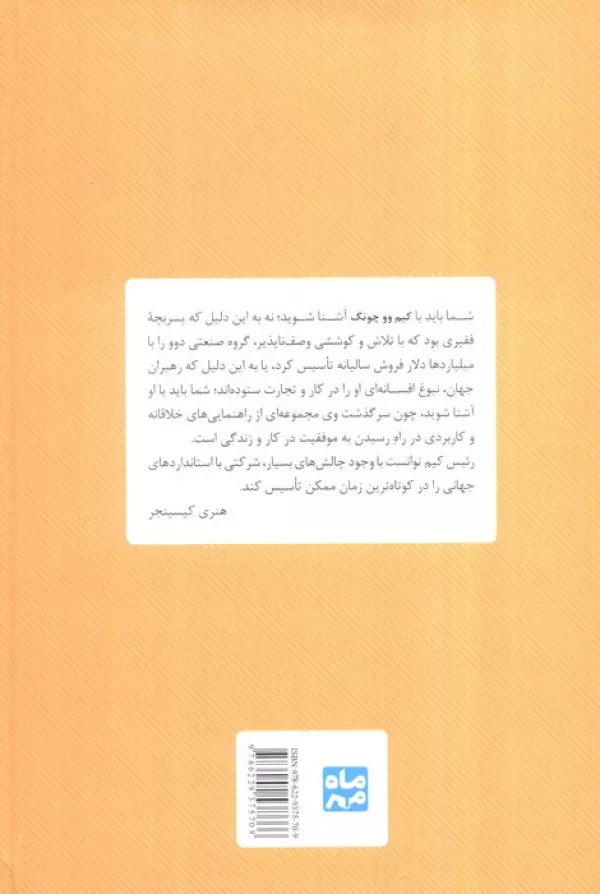 شما باید با کیم وو چونگ آشنا شوید؛ نه به این دلیل که پسربچهٔ
فقیری بود که با تلاش و کوششی وصف‌ناپذیر، گروه صنعتی دوو را با
میلیاردها دلار فروش سالیانه تأسیس کرد، یا به این دلیل که رهبران
جهان، نبوغ افسانه‌ای او را در کار و تجارت ستوده‌اند؛ شما باید با او
آشنا شوید، چون سرگذشت وی مجموعه‌ای از راهنمایی‌های خلاقانه
و کاربردی در راهِ رسیدن به موفقیت در کار و زندگی است.
رئیس کیم توانست با وجود چالش‌های بسیار، شرکتی با استانداردهای
جهانی را در کوتاه‌ترین زمان ممکن تأسیس کند.
هنری کیسینجر
ISBN: 978-622-9375-70-9
9786229375709
ماه
مهر